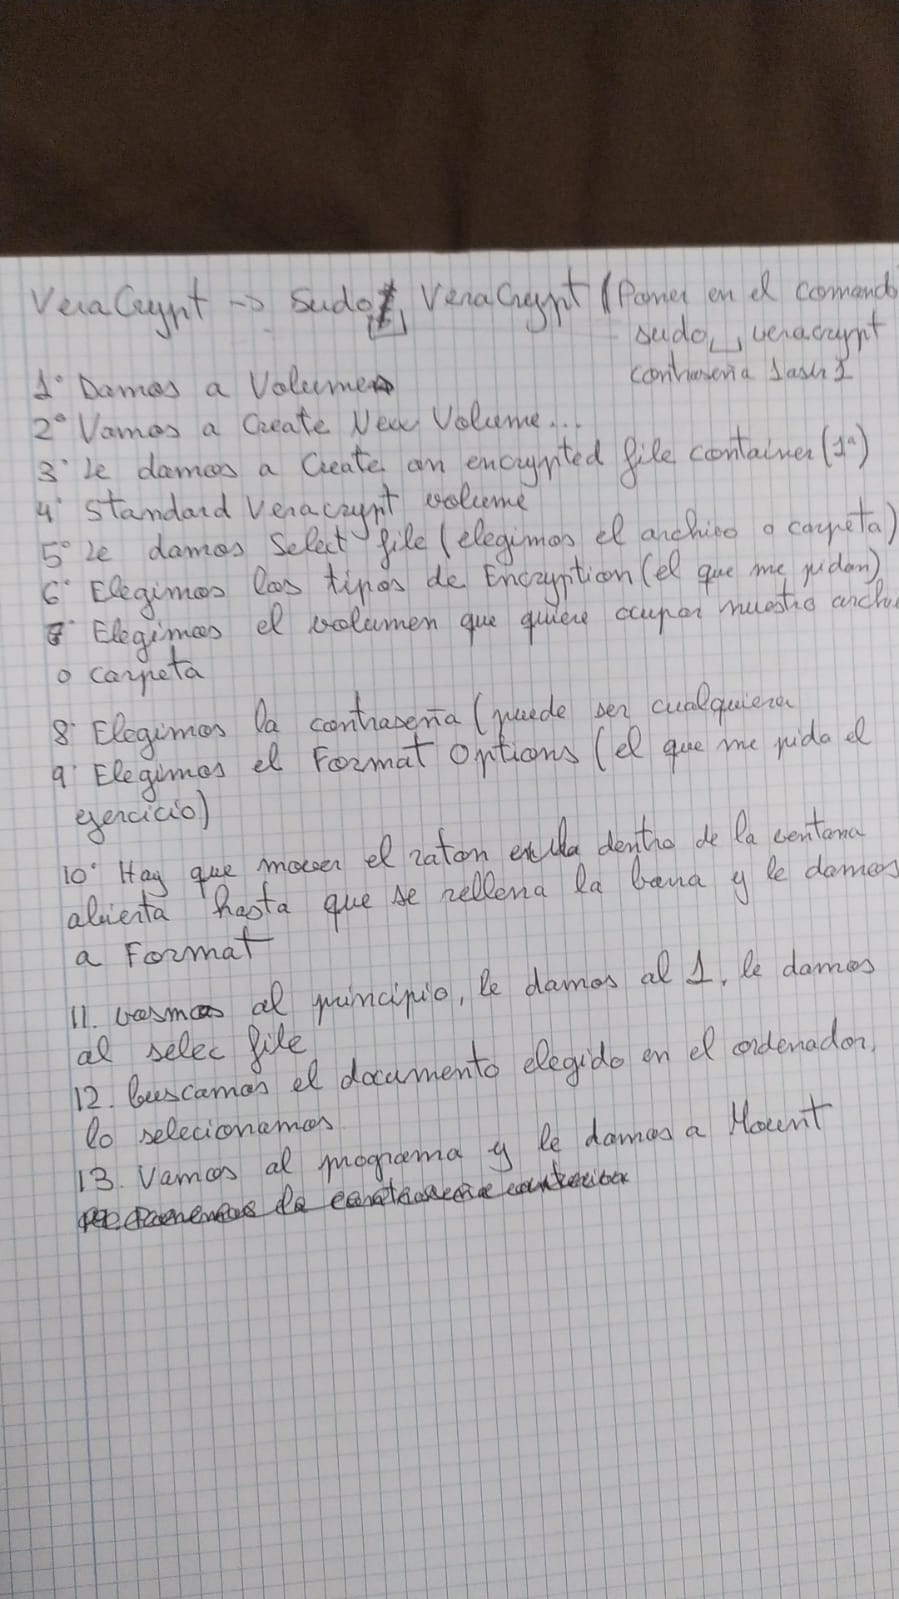 VeraCrypt -> Sudo␣VeraCrypt (Poner en el comando
sudo␣veracrypt
contraseña
1º Damos a Volumen
2º Vamos a Create New Volume...
3º Le damos a Create an encrypted file container (1ª)
4º Standard Veracrypt volume
5º Le damos Select file (elegimos el archivo o carpeta)
6º Elegimos los tipos de Encryption (el que me pidan)
7º Elegimos el volumen que quiere ocupar nuestro
o carpeta
8º Elegimos la contraseña (puede ser cualquiera
9º Elegimos el Format Options (el que me pida el
ejercicio)
10º Hay que mover el raton dentro de la ventana
abierta hasta que se rellena la barra y le damos
a Format
11. vamos al principio, le damos al 1, le damos
al selec file
12. buscamos el documento elegido en el ordenador,
lo selecionamos
13. Vamos al programa y le damos a Mount